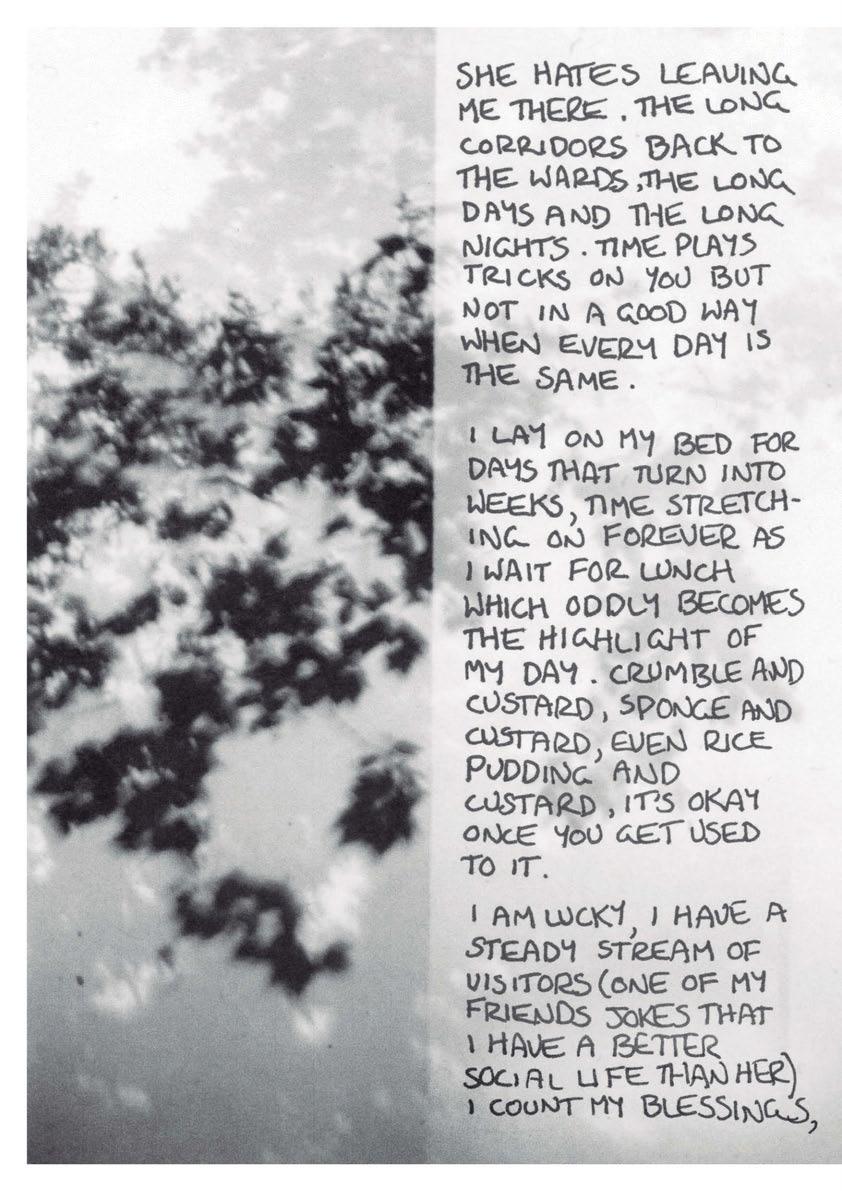 SHE HATES LEAVING
ME THERE. THE LONG
CORRIDORS BACK TO
THE WARDS, THE LONG
DAYS AND THE LONG
NIGHTS. TIME PLAYS
TRICKS ON YOU BUT
NOT IN A GOOD WAY
WHEN EVERY DAY IS
THE SAME.
I LAY ON MY BED FOR
DAYS THAT TURN INTO
WEEKS, TIME STRETCH-
ING ON FOREVER AS
I WAIT FOR LUNCH
WHICH ODDLY BECOMES
THE HIGHLIGHT OF
MY DAY. CRUMBLE AND
CUSTARD, SPONGE AND
CUSTARD, EVEN RICE
PUDDING AND
CUSTARD, IT'S OKAY
ONCE YOU GET USED
TO IT.
I AM LUCKY, I HAVE A
STEADY STREAM OF
VISITORS (ONE OF MY
FRIENDS JOKES THAT
I HAVE A BETTER
SOCIAL LIFE THAN HER)
I COUNT MY BLESSINGS,